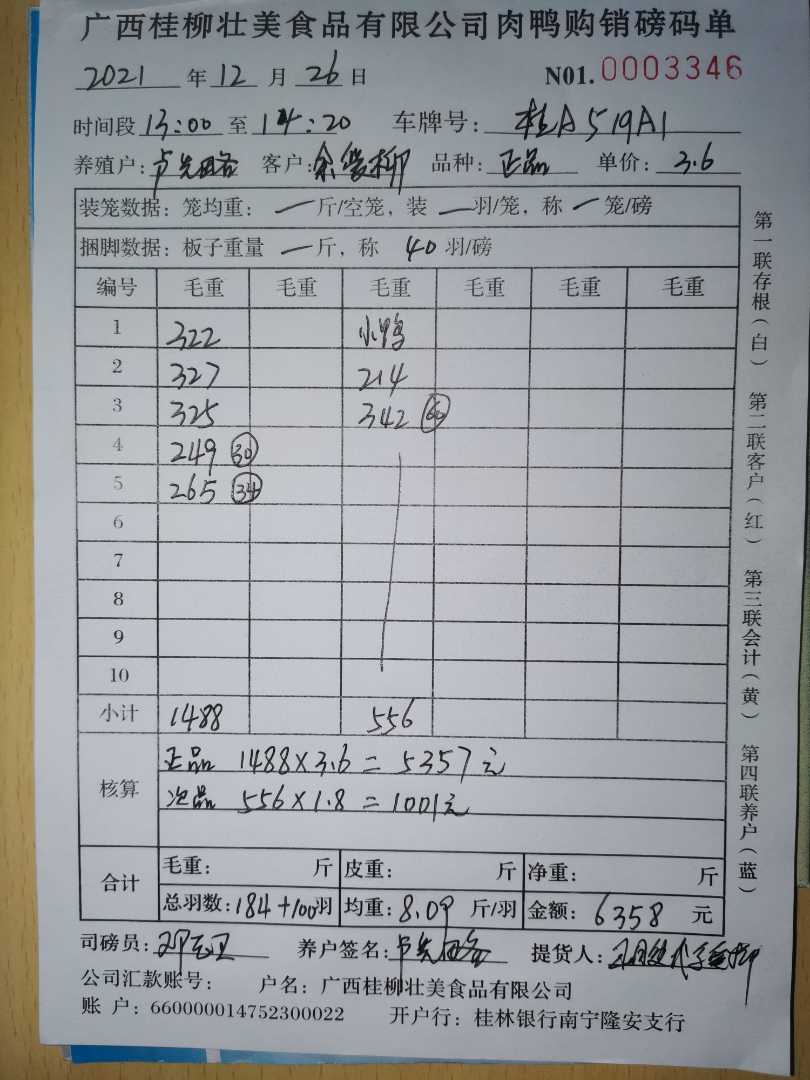 广西桂柳壮美食品有限公司肉鸭购销磅码单
2021 年 12 月 26 日 N01. 0003346
时间段 13:00 至 14:20 车牌号: 桂A519A1
养殖户: 客户: 品种: 正品 单价: 3.6
装笼数据: 笼均重: 一 斤/空笼, 装 一 羽/笼, 称 一 笼/磅
捆脚数据: 板子重量 一 斤, 称 40 羽/磅
编号 毛重 毛重 毛重 毛重 毛重 毛重
1 322 小鸭
2 327 214
3 325 342 60
4 249 30
5 265 34
6
7
8
9
10
小计 1488 556
核算 正品 1488×3.6=5357元
次品 556×1.8=1001元
合计 毛重: 斤 皮重: 斤 净重: 斤
总羽数: 184+100羽 均重: 8.09 斤/羽 金额: 6358 元
司磅员: 养户签名: 提货人:
公司汇款账号: 户名: 广西桂柳壮美食品有限公司
账 户: 660000014752300022 开户行: 桂林银行南宁隆安支行
第一联存根(白) 第二联客户(红) 第三联会计(黄) 第四联养户(蓝)